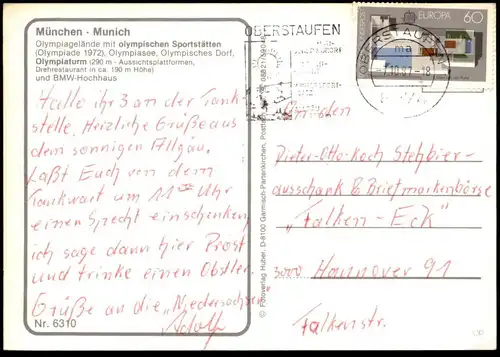 München · Munich
Olympiagelände mit olympischen Sportstätten
(Olympiade 1972), Olympiasee, Olympisches Dorf,
Olympiaturm (290 m - Aussichtsplattformen,
Drehrestaurant in ca. 190 m Höhe)
und BMW-Hochhaus
Hallo ihr 3 an der Tank
stelle, Herzliche Grüße aus
dem sonnigen Allgäu.
Laßt Euch von dem
Tankwart um 11 Uhr
einen Specht einschinken
ich sage dann hier Prost
und trinke einen Obstler
Grüße an die „Niedersachsen
Adolf
Nr. 6310
© Fotoverlag Huber, D-8100 Garmisch-Partenkirchen
OBERSTAUFEN
OBERSTAUFEN
EUROPA 60
An den
Dieter-Otto-Koch Stehbier-
ausschank & Briefmarkenbörse
„Falken-Eck"
3000 Hannover 91
Falkenstr.